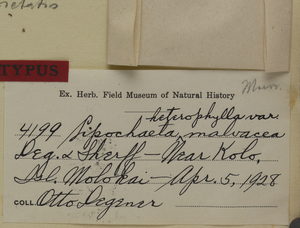 TYPUS
Ex. Herb. Field Museum of Natural History
heterophylla var.
4199 Lipochaeta malvacea
Deg. & Sherff – Near Kolo,
Isl. Molokai – Apr. 5, 1928
COLL. Otto Degener